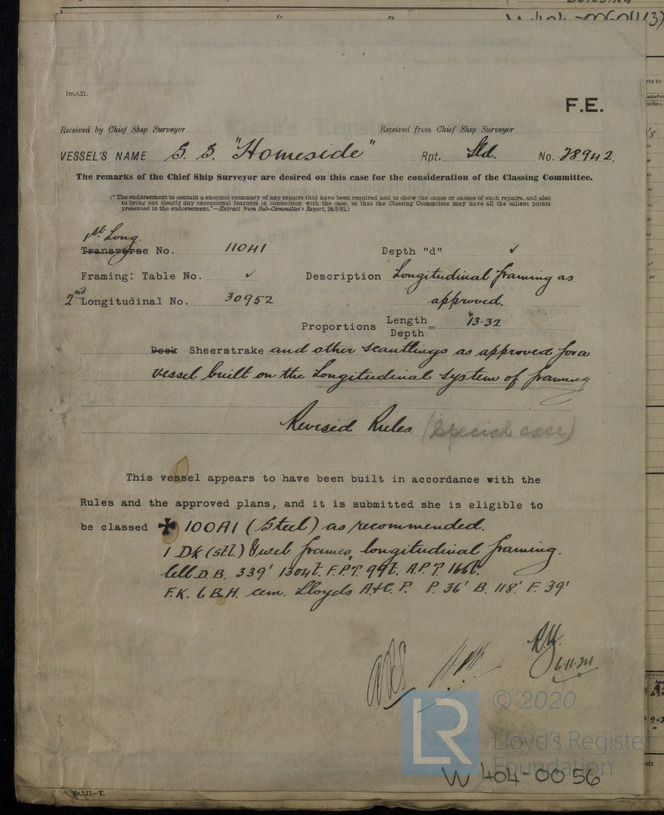 W404-0060(13)
1m.8.21.
F.E.
Received by Chief Ship Surveyor Received from Chief Ship Surveyor
VESSEL'S NAME S.S. "Homeside" Rpt. Sld. No. 28942.
The remarks of the Chief Ship Surveyor are desired on this case for the consideration of the Classing Committee.
("The endorsement to contain a succinct summary of any repairs that have been required and to show the cause or causes of such repairs, and also
to bring out clearly any exceptional features in connection with the case, so that the Classing Committee may have all the salient points
presented in the endorsement."—Extract from Sub-Committee's Report, 24/5/92.)
1st Long
Transverse No. 11041 Depth "d" ✓
Framing: Table No. ✓ Description Longitudinal framing as
2nd Longitudinal No. 30952 approved.
Proportions Length
Depth = 13.32
Deck Sheerstrake and other scantlings as approved for a
vessel built on the Longitudinal system of framing
Revised Rules (Special case)
This vessel appears to have been built in accordance with the
Rules and the approved plans, and it is submitted she is eligible to
be classed ✠ 100A1 (Steel) as recommended.
1 DK (stl.) & web frames, longitudinal framing.
Cell D.B. 339' 1304t. F.P.T. 99t. A.P.T. 166t.
F.K. 6 B.H. cem. Lloyds A&C.P. P. 36' B. 118' F. 39'
6.11.24
LR © 2020
Lloyd's Register
Foundation
W404-0056